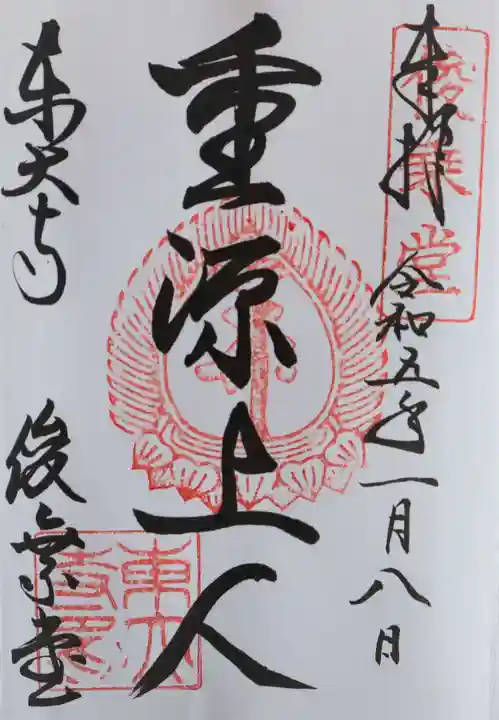 奉拝
令和五年一月八日
俊乗堂
重源上人
東大寺
俊乗堂